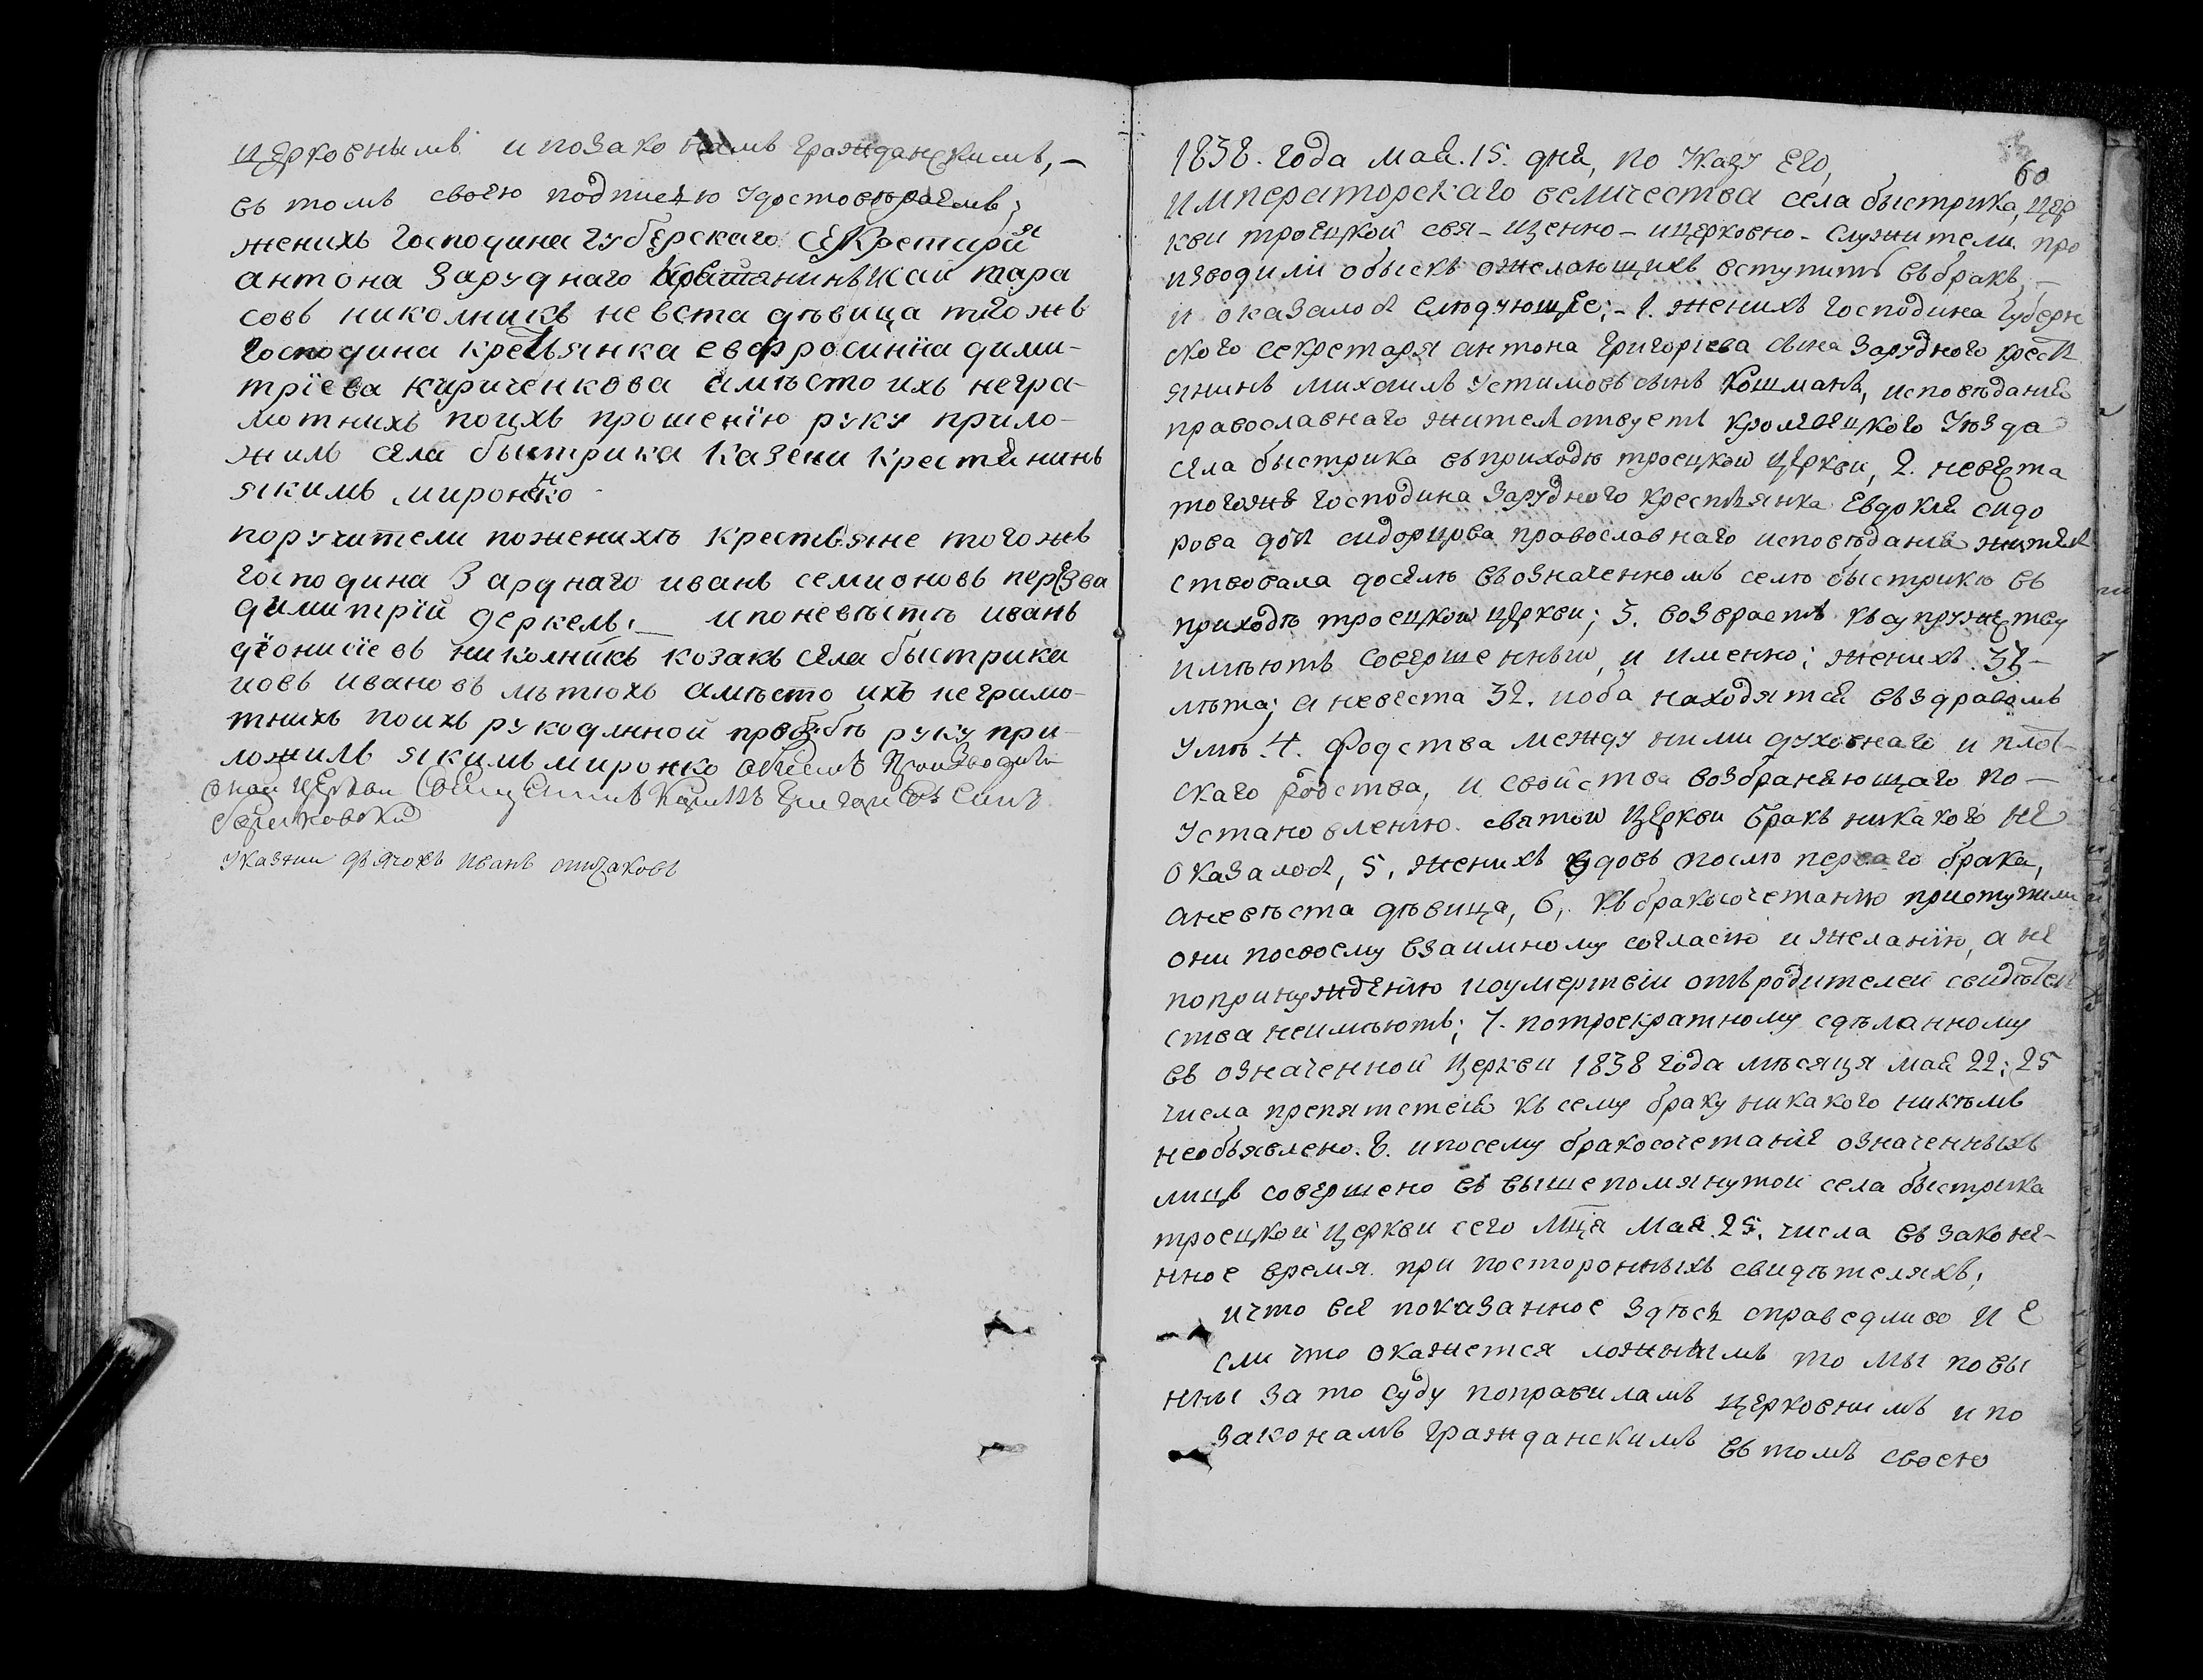 церковнымъ и позако намъ гражданскимъ, –
въ томъ своею подписею удостовѣраемъ;
женихъ господина губерскаго секретаря
антона Заруднаго исай тара
совъ николникъ невста дѣвица тогожъ
господина крестьянка евфросинїа дими-
трїева кириченкова амѣсто ихъ негра-
мотнихъ поихъ прошенїю руку прило-
жилъ села быстрика казени крестянинъ
якимъ миронко
поручители поженихѣ крестьяне тогожъ
господина Зарднаго иванъ семионовъ
димитрїй деркель. – ипоневѣстѣ иванъ
дїонисїевъ николникъ козакъ села быстрика
иовъ ивановъ мѣтюхъ амѣсто ихъ неграмо-
тнихъ поихъ рукодлнной прозбѣ руку при-
ложилъ якимъ миронко обыскъ производилъ
оной церкви священникъ
указни дячокъ иванъ
60
1838. года мая. 15. дня, по указу его,
императорскаго величества села быстрика, цер
кви троецкой свя-щенно-ицерковно-служители про
изводили обыскъ ожелающихъ вступить въбракъ, –
и оказалося слѣдующее; – 1. женихъ господина губерн
ского секретаря антона григорїева сына Зарудного крест
янинъ михаилъ устимовъ сынъ кошманъ, исповѣданїя
православнаго жителствуетъ кролевецкого уѣзда
села быстрика въприходѣ троецкой церкви, 2. невеста
тогожъ господина Зарудного крестьянка евдокїя сидо
рова дочь православнаго исповѣданїя жител
ствовала доселѣ въозначенномъ селѣ быстрикѣ въ
приходѣ троецкой церкви; 3. возврастъ ксупружеству
имѣютъ совершенный, и именно; женихъ 38 –
лѣта; а невеста 32. иоба находятся въздравомъ
умѣ. 4. родства между ними духовнаго и плот-
скаго родства, и свойства возбраняющаго по –
установленїю святой церкви бракъ никакого не
оказалося, 5, женихъ вдовъ послѣ перваго брака,
аневѣста дѣвица, 6, къбракосочетанїю приступили
они посвоему взаимному согласїю ижеланїю, а не
попринужденїю иоумертвїи отъродителей свидѣтел
ства неимѣютъ; 7. потроекратному сдѣланному
въ означенной церкви 1838 года мѣсяця мая 22; 25
числа препятствїя къ сему браку никакого никѣмъ
необьявлено. 8. ипосему бракосочетанїе означенныхъ
лицъ совершено въ вышепомянутой села быстрика
троецкой церкви сего мца мая. 25. числа въ законе-
нное время при постороннихъ свидѣтеляхъ;
ичто все показанное здѣся справедливо и е
сли что окажется ложнымъ то мы повы
нны за то суду поправиламъ церковнимъ и по
законамъ гражданскимъ въ томъ своею